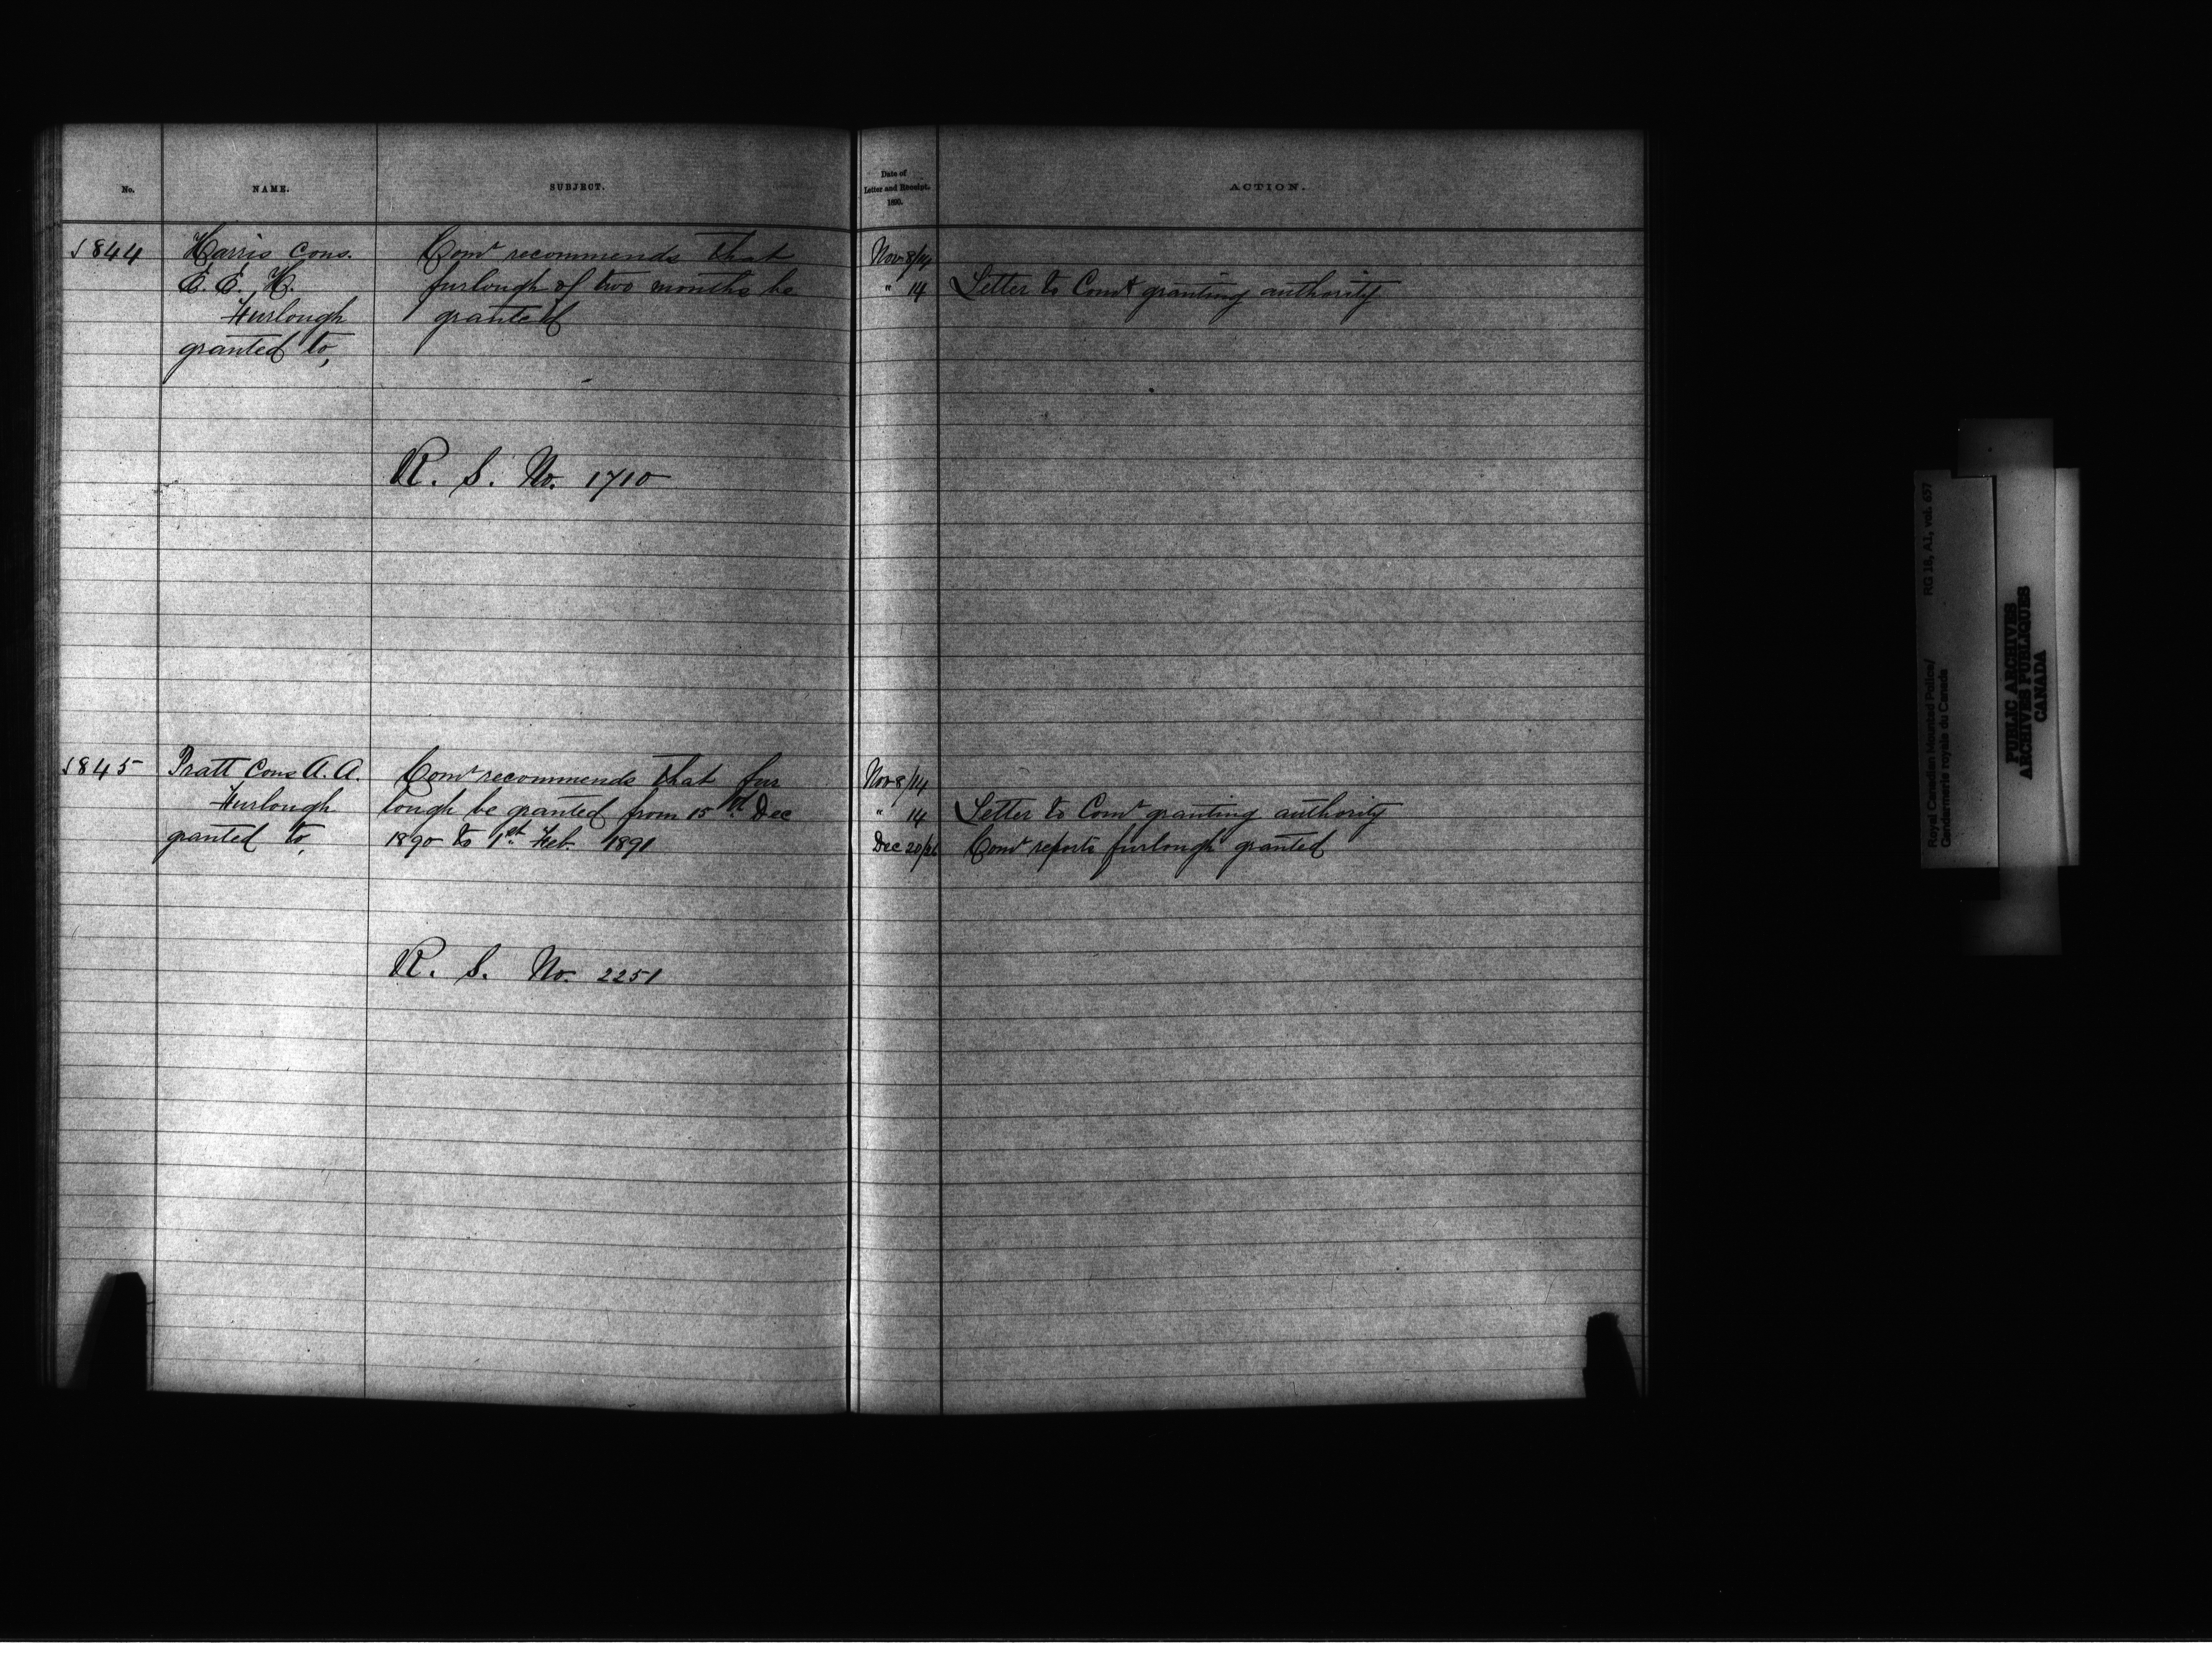 No.
NAME.
SUBJECT.
Date of
Letter and Receipt.
1890.
ACTION.
1844
Harris Cons.
E. E. H.
Furlough
granted to,
Comr recommends that
furlough of two months be
granted
Nov 8/14
" 14
Letter to Comr granting authority
R. S. No. 1710
1845
Pratt Cons A. A.
Furlough
granted to,
Comr recommends that fur
lough be granted from 15th Dec
1890 to 1st Feb. 1891
Nov 8/14
" 14 Letter to Comr granting authority
Dec 20/26 Comr reports furlough granted
R. S. No. 2251
Royal Canadian Mounted Police/
Gendarmerie royale du Canada
RG 18, A1, vol. 657
PUBLIC ARCHIVES
ARCHIVES PUBLIQUES
CANADA